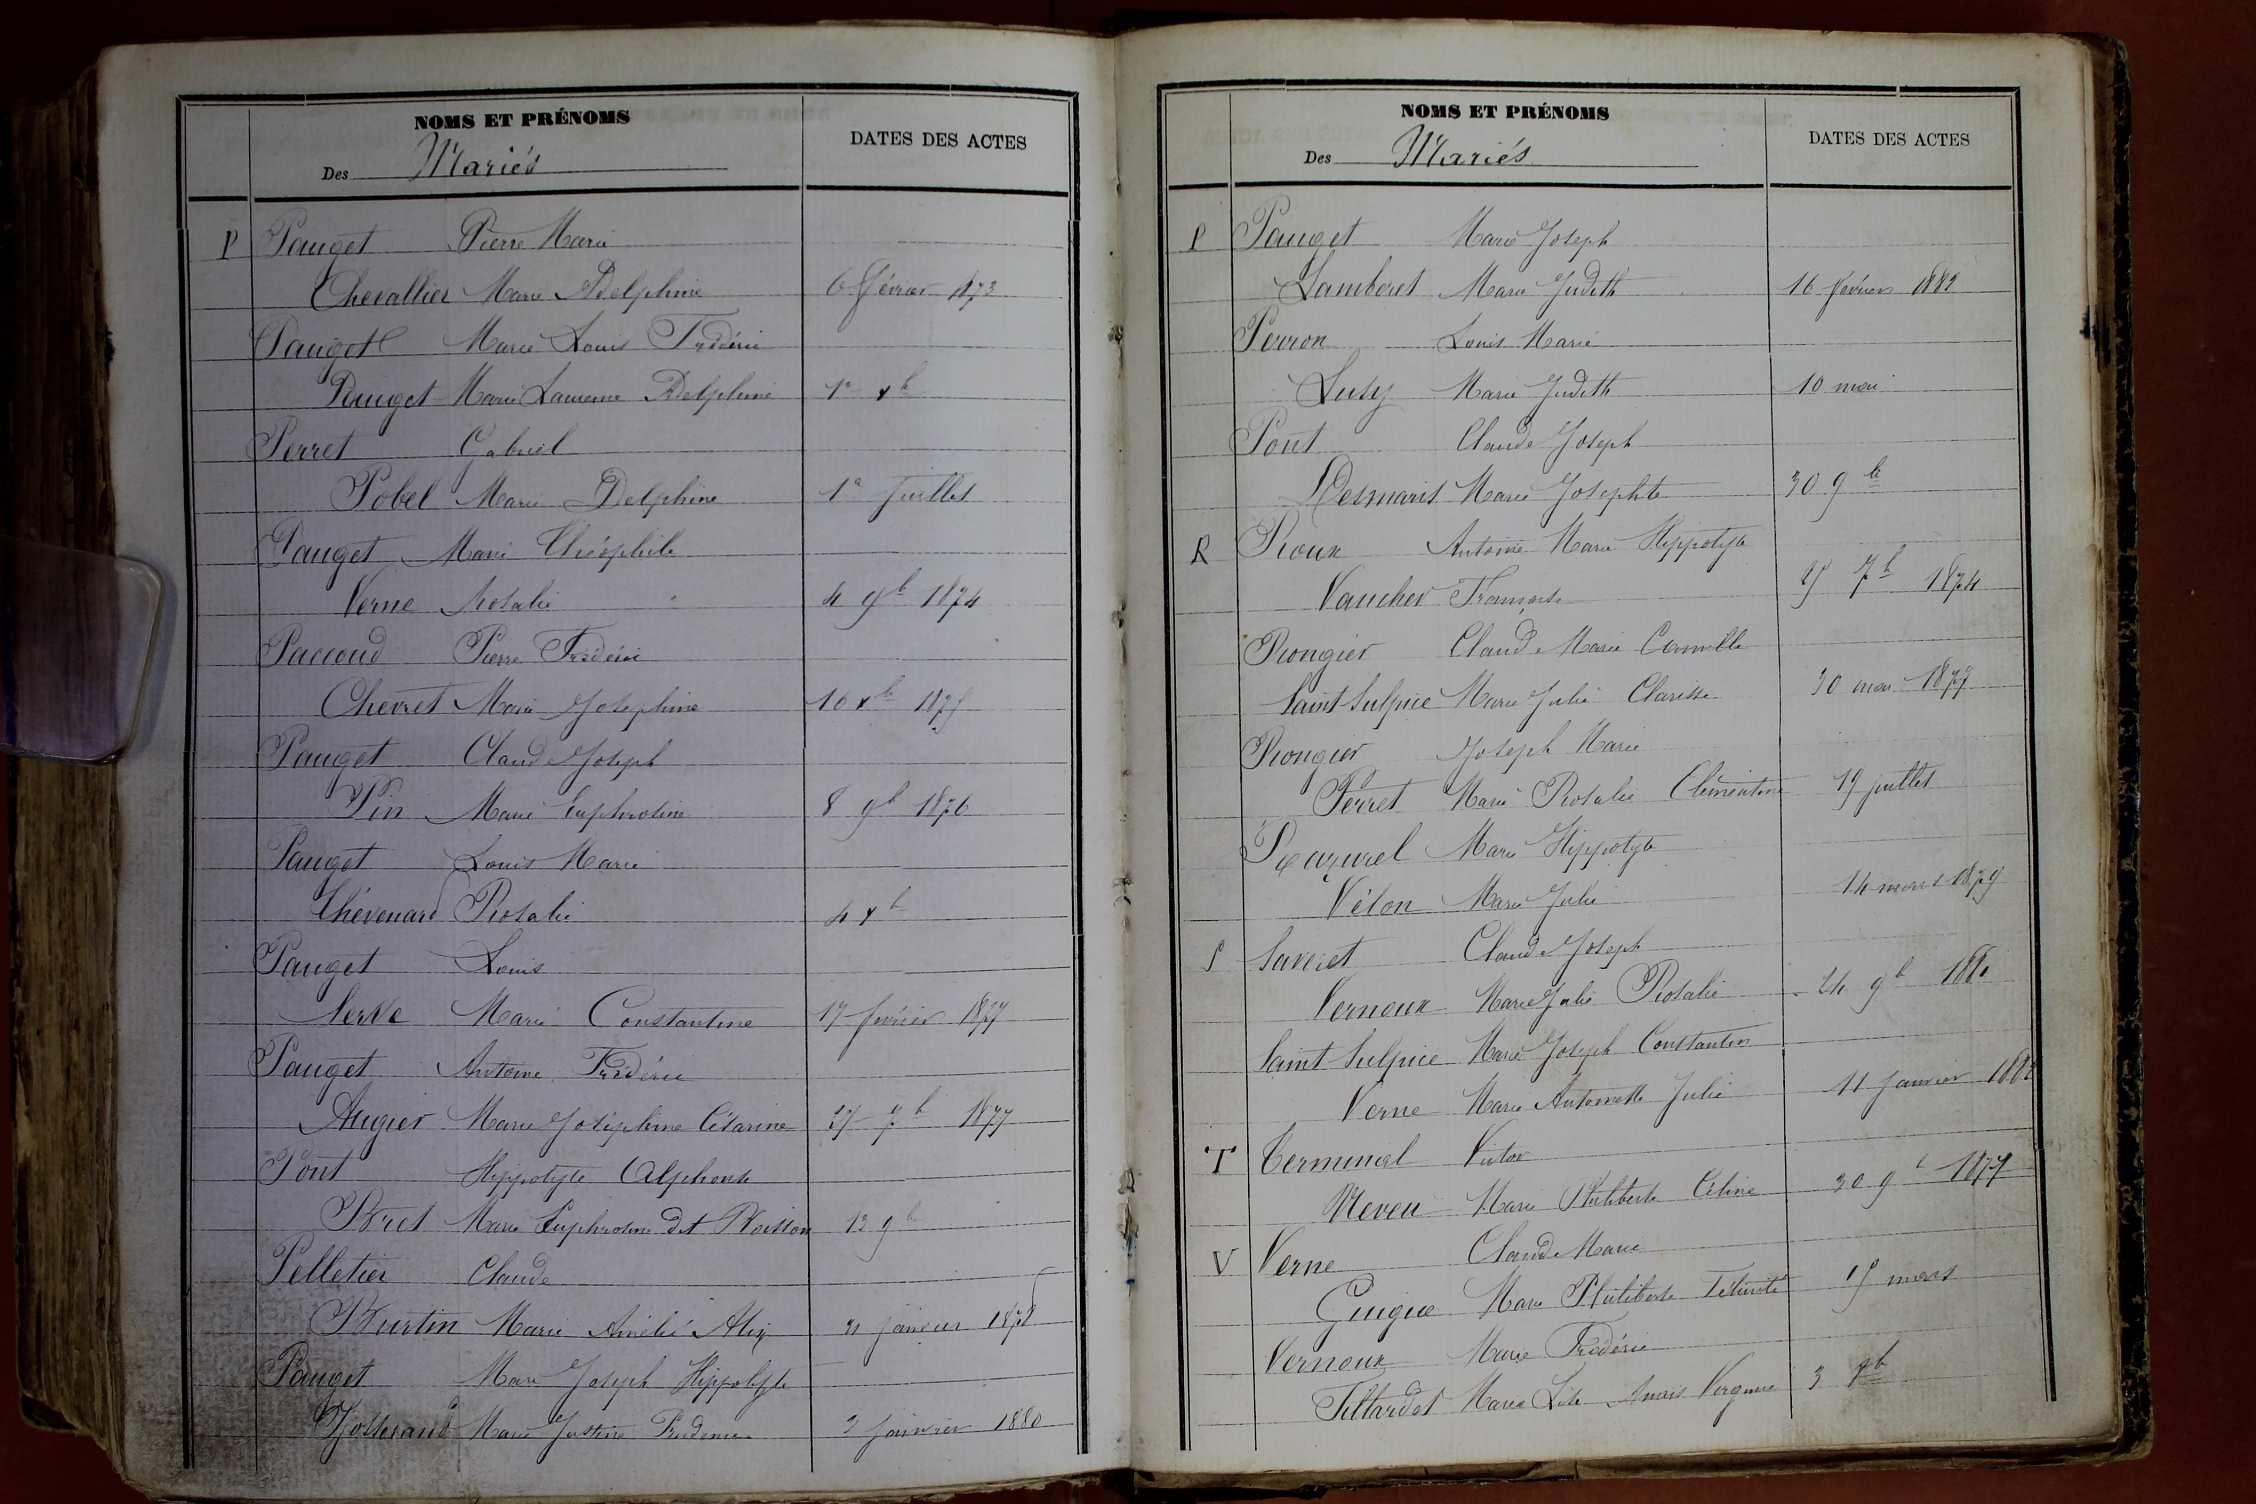 NOMS ET PRÉNOMS
Des Mariés
DATES DES ACTES
P Pauget Pierre Marie
Chevallier Marie Adelphine 6 février 1873
Pauget Marie Louis Frédéric
Pauget Marie Laurence Delphine 1er xb
Perret Gabriel
Pobel Marie Delphine 1er Juillet
Pauget Marie Théophile
Verne Rosalie 4 9b 1874
Paccoud Pierre Frédéric
Chevret Marie Joséphine 10 xb 1875
Pauget Claude Joseph
Pin Marie Euphrosine 8 9b 1876
Pauget Louis Marie
Thévenard Rosalie 4 xb
Pauget Louis
Serve Marie Constantine 17 février 1877
Pauget Antoine Frédéric
Augier Marie Joséphine Césarine 27 7b 1877
Pont Hippolyte Alphonse
Bret Marie Euphrosine dit Poisson 12 9b
Pelletier Claude
Burtin Marie Amélie Alix 31 janvier 1878
Pauget Marie Joseph Hippolyte
Josserand Marie Justine Prudence 3 janvier 1880
NOMS ET PRÉNOMS
Des Mariés
DATES DES ACTES
P Pauget Marie Joseph
Lamberet Marie Judith 16 février 1882
Perron Louis Marie
Lusy Marie Judith 10 mai
Pont Claude Joseph
Desmaris Marie Josephte 30 9b
R Roux Antoine Marie Hippolyte
Vaucher Françoise 25 7b 1874
Rongier Claude Marie Camille
Saint Sulpice Marie Julie Clarisse 30 mai 1877
Rongier Joseph Marie
Perret Marie Rosalie Clémentine 19 juillet
Razurel Marie Hippolyte
Vélon Marie Julie 14 mars 1879
S Saveret Claude Joseph
Vernoux Marie Julie Rosalie 24 9b 1880
Saint Sulpice Marie Joseph Constantin
Verne Marie Antoinette Julie 11 janvier 1882
T Terminal Victor
Neveu Marie Philiberte Céline 30 9b 1877
V Verne Claude Marie
Guigue Marie Philiberte Félicité 15 mars
Vernoux Marie Frédéric
Tillardet Marie Lise Anais Virginie 3 9b